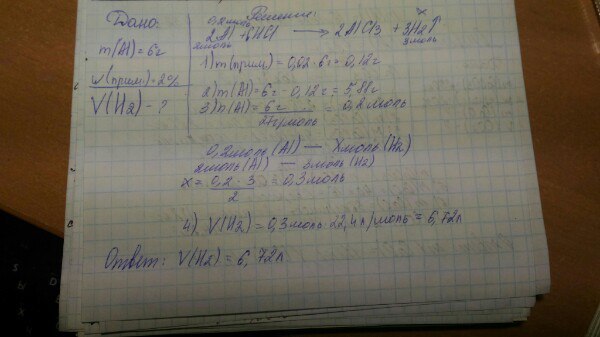 Дано:
m(Al)=6г
w(прим)=2%
V(H2) - ?
Решение:
0,2моль x
2Al + 6HCl → 2AlCl3 + 3H2↑
2моль 3моль
1) m(прим) = 0,02 · 6г = 0,12г
2) m(Al) = 6г - 0,12г = 5,88г
3) n(Al) = 6г / 27г/моль = 0,2моль
0,2моль (Al) — Xмоль (H2)
2моль (Al) — 3моль (H2)
x = 0,2 · 3 / 2 0,3моль
4) V(H2) = 0,3моль · 22,4л/моль = 6,72л
Ответ: V(H2) = 6,72л